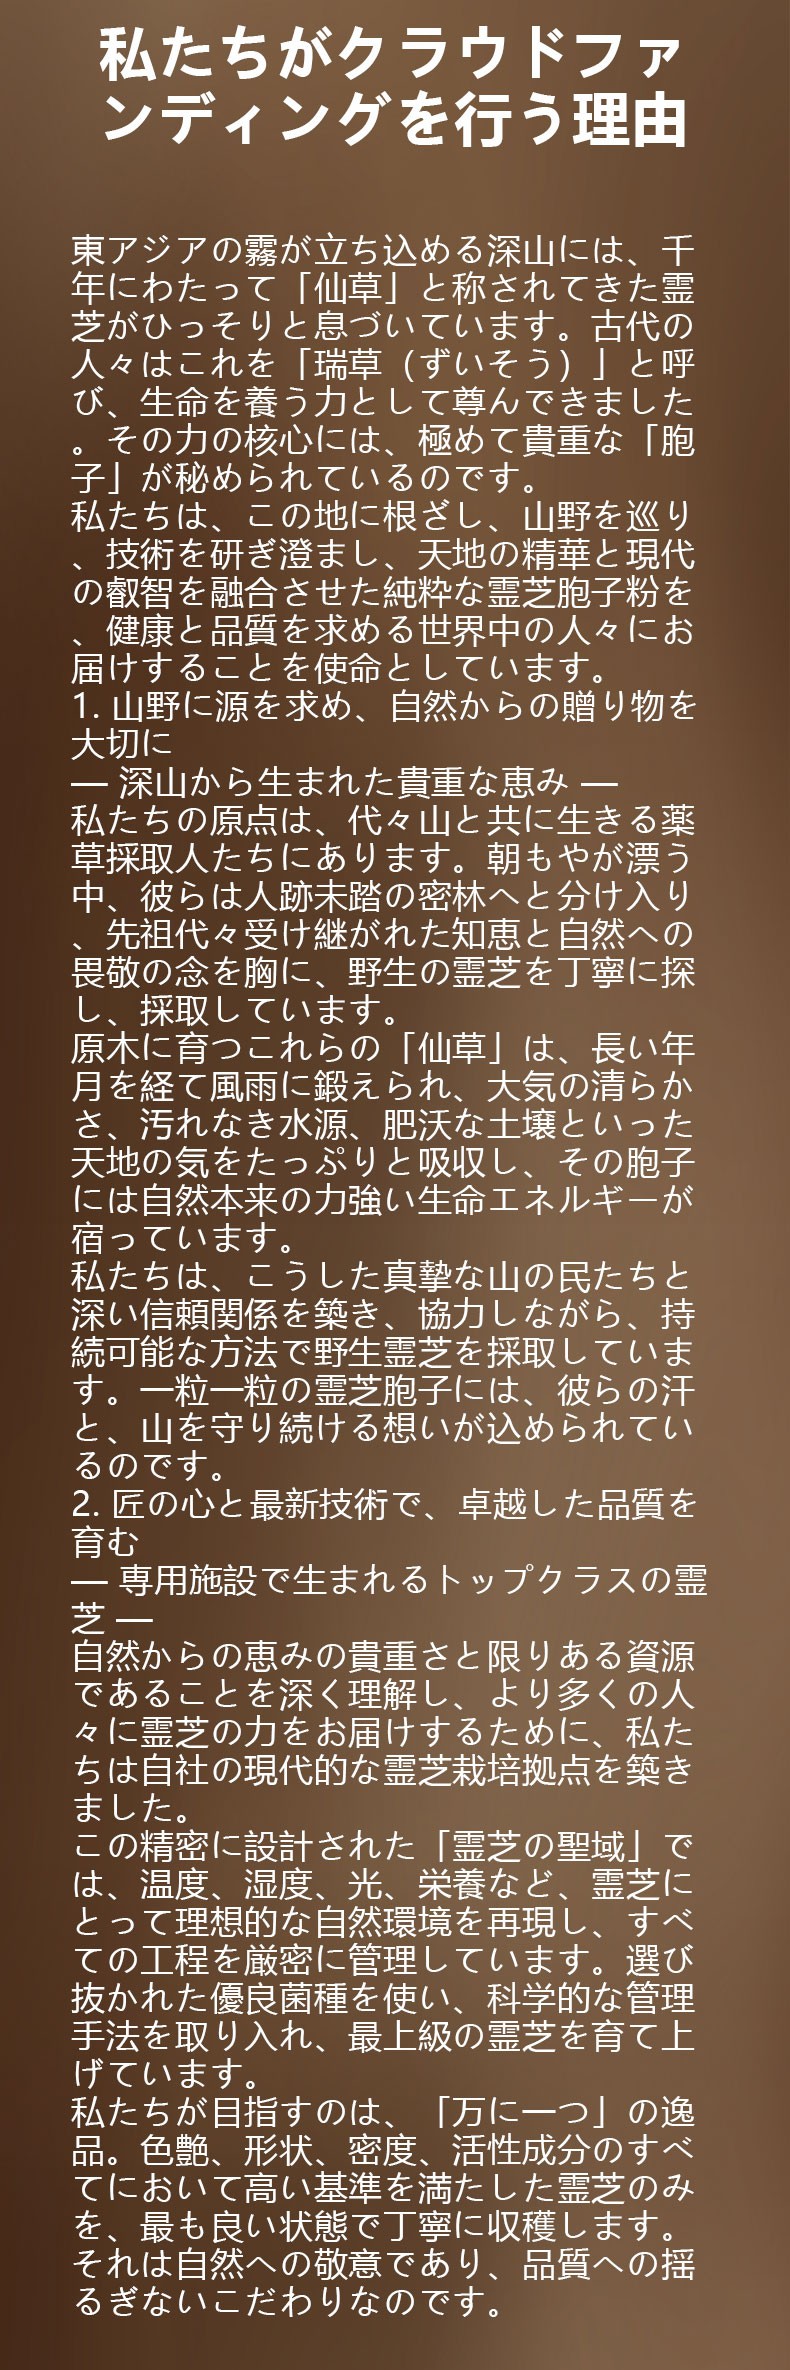 私たちがクラウドファ
ンディングを行う理由
東アジアの霧が立ち込める深山には、千
年にわたって「仙草」と称されてきた霊
芝がひっそりと息づいています。古代の
人々はこれを「瑞草（ずいそう）」と呼
び、生命を養う力として尊んできました
。その力の核心には、極めて貴重な「胞
子」が秘められているのです。
私たちは、この地に根ざし、山野を巡り
、技術を研ぎ澄まし、天地の精華と現代
の叡智を融合させた純粋な霊芝胞子粉を
、健康と品質を求める世界中の人々にお
届けすることを使命としています。
1. 山野に源を求め、自然からの贈り物を
大切に
― 深山から生まれた貴重な恵み ―
私たちの原点は、代々山と共に生きる薬
草採取人たちにあります。朝もやが漂う
中、彼らは人跡未踏の密林へと分け入り
、先祖代々受け継がれた知恵と自然への
畏敬の念を胸に、野生の霊芝を丁寧に探
し、採取しています。
原木に育つこれらの「仙草」は、長い年
月を経て風雨に鍛えられ、大気の清らか
さ、汚れなき水源、肥沃な土壌といった
天地の気をたっぷりと吸収し、その胞子
には自然本来の力強い生命エネルギーが
宿っています。
私たちは、こうした真摯な山の民たちと
深い信頼関係を築き、協力しながら、持
続可能な方法で野生霊芝を採取していま
す。一粒一粒の霊芝胞子には、彼らの汗
と、山を守り続ける想いが込められてい
るのです。
2. 匠の心と最新技術で、卓越した品質を
育む
― 専用施設で生まれるトップクラスの霊
芝 ―
自然からの恵みの貴重さと限りある資源
であることを深く理解し、より多くの人
々に霊芝の力をお届けするために、私た
ちは自社の現代的な霊芝栽培拠点を築き
ました。
この精密に設計された「霊芝の聖域」で
は、温度、湿度、光、栄養など、霊芝に
とって理想的な自然環境を再現し、すべ
ての工程を厳密に管理しています。選び
抜かれた優良菌種を使い、科学的な管理
手法を取り入れ、最上級の霊芝を育て上
げています。
私たちが目指すのは、「万に一つ」の逸
品。色艶、形状、密度、活性成分のすべ
てにおいて高い基準を満たした霊芝のみ
を、最も良い状態で丁寧に収穫します。
それは自然への敬意であり、品質への揺
るぎないこだわりなのです。